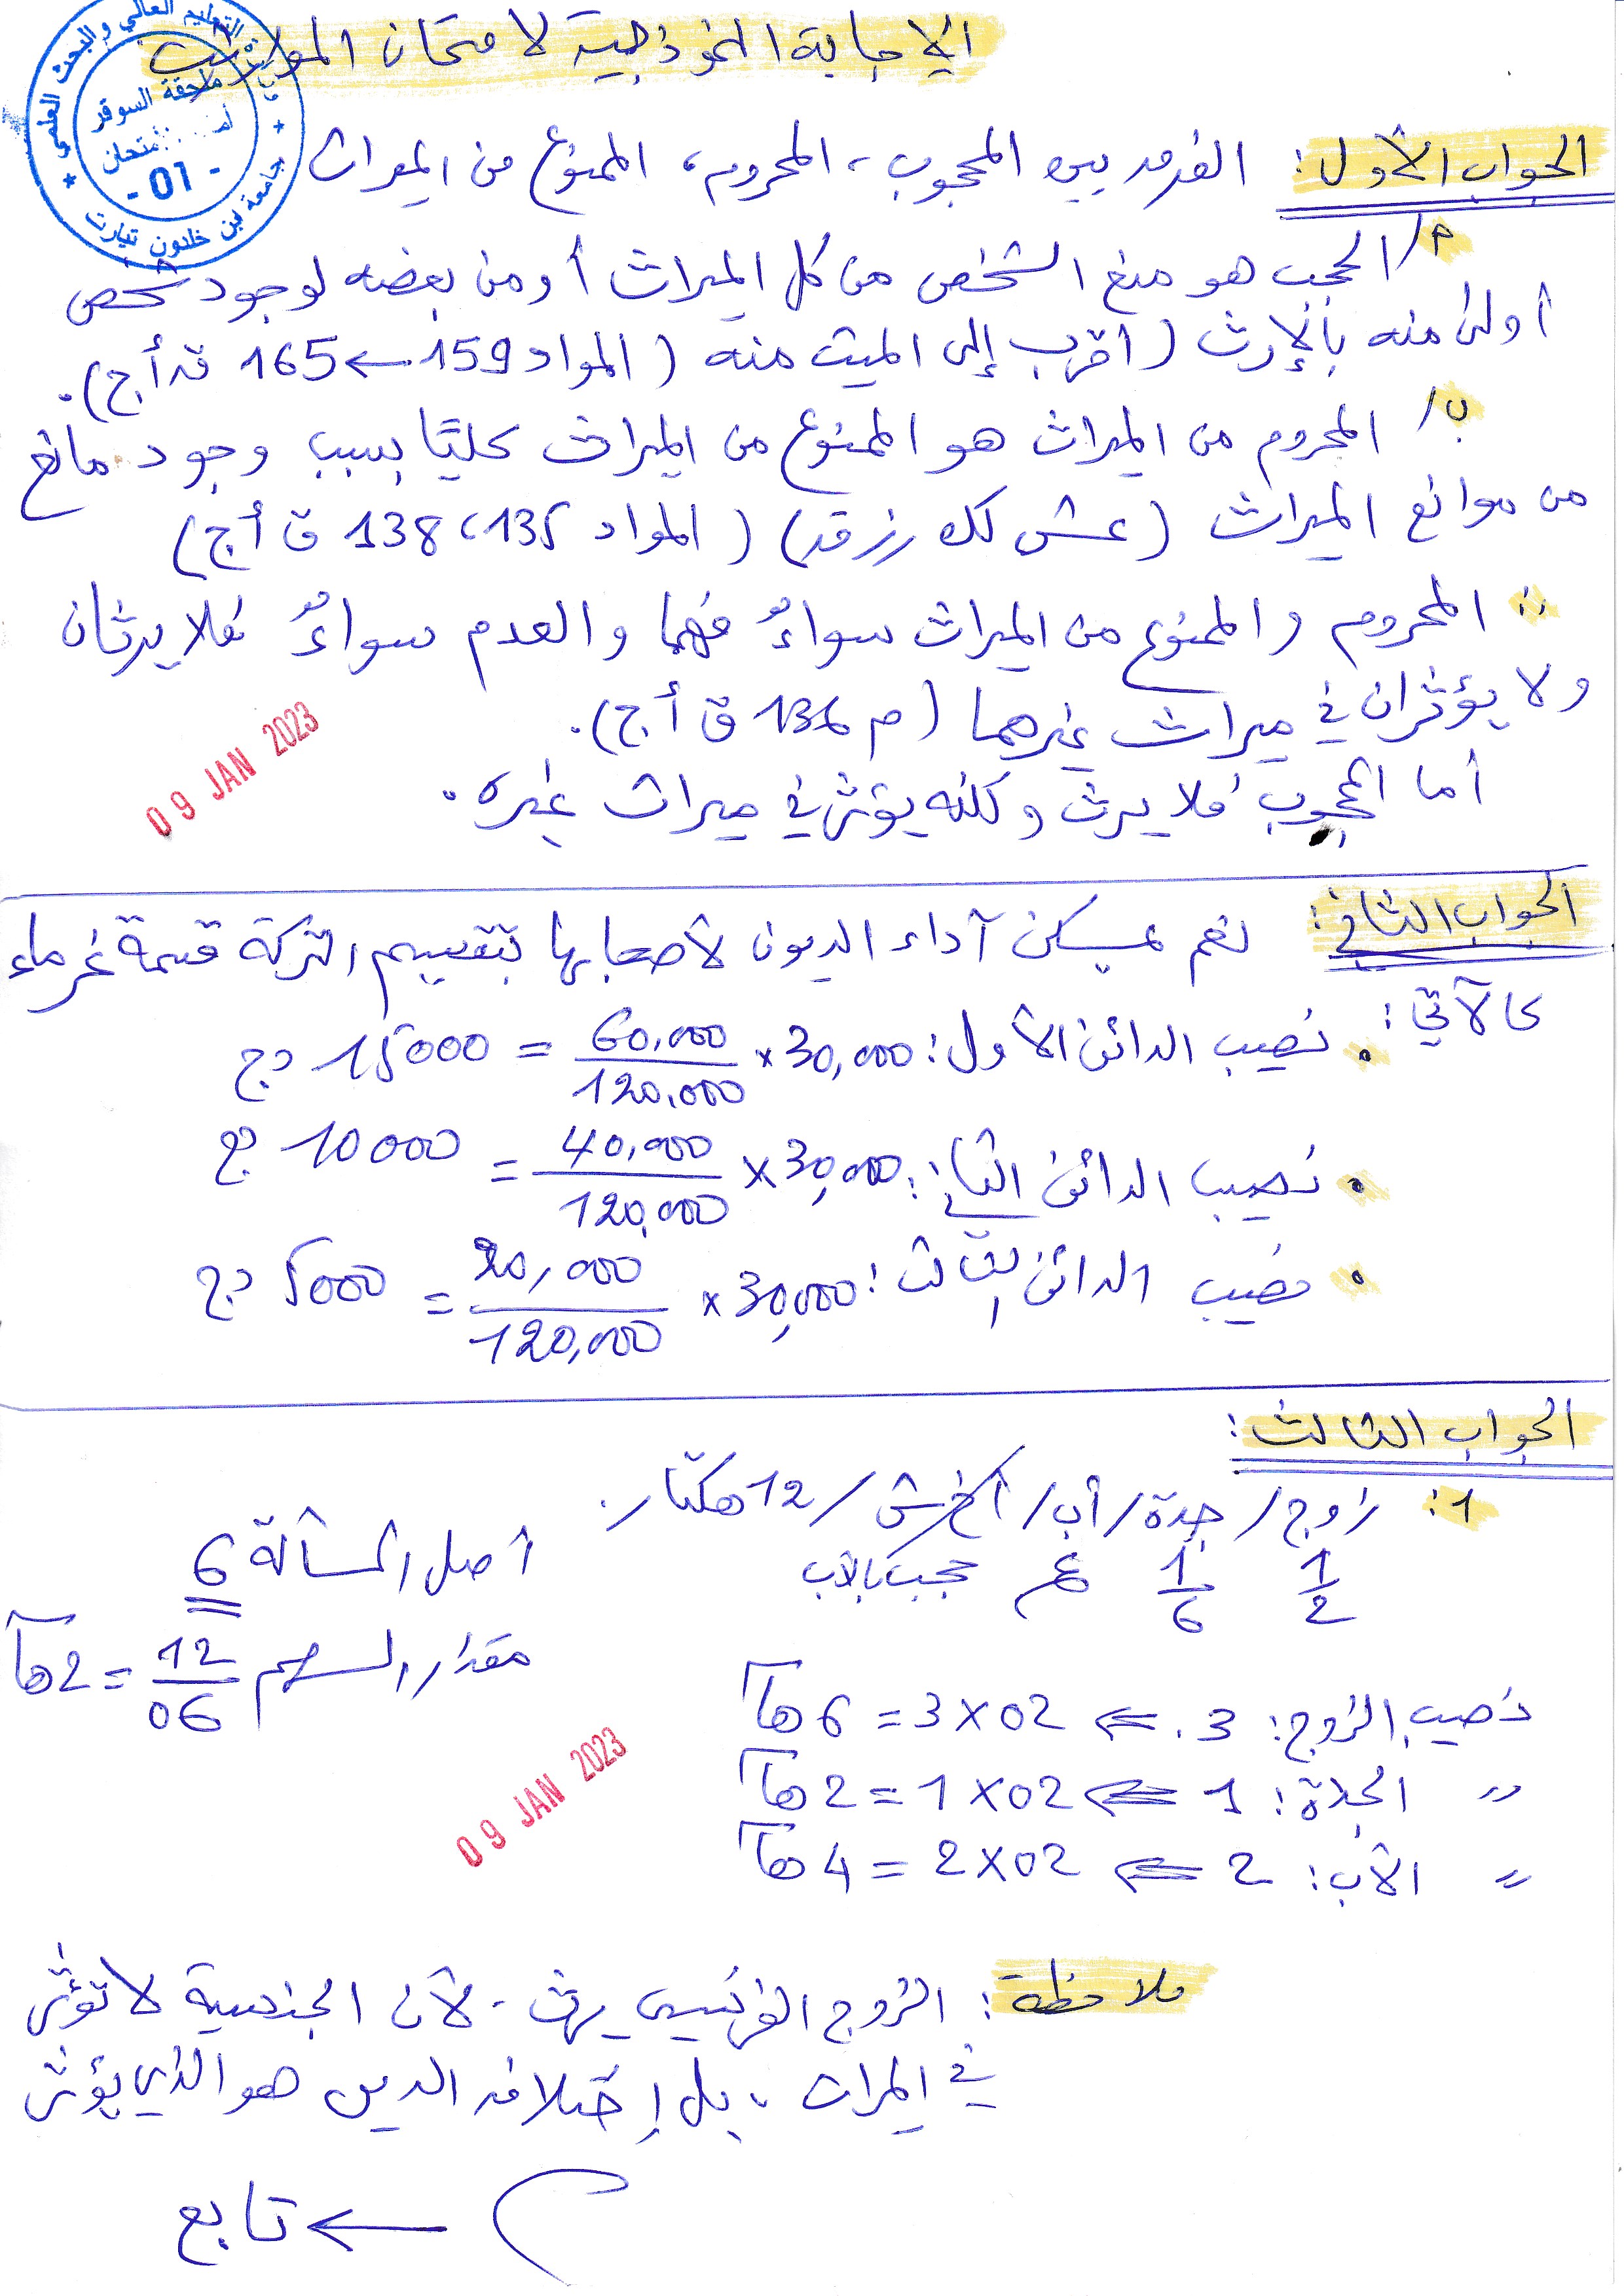 الإجابة النموذجية لامتحان المواريث
التعليم العالي والبحث العلمي
ملحقة السوقر
امتحان
- 01 -
جامعة ابن خلدون تيارت
الجواب الأول: الفرق بين المحجوب، المحروم، الممنوع من الميراث
أ/ الحجب هو منع الشخص من كل الميراث أو من بعضه لوجود شخص
أولى منه بالإرث (أقرب إلى الميت منه (المواد 159 ← 165 ق أ ج).
ب/ المحروم من الميراث هو الممنوع من الميراث كليًا بسبب وجود مانع
من موانع الميراث (عش لك رزق) (المواد 135، 138 ق أ ج)
∴ المحروم والممنوع من الميراث سواءٌ فهما والعدم سواءٌ فلا يرثان
ولا يؤثران في ميراث غيرهما (م 136 ق أ ج).
أما المحجوب فلا يرث ولكنه يؤثر في ميراث غيره.
09 JAN 2023
الجواب الثاني: نعم يمكن آداء الديون لأصحابها بتقسيم التركة قسمة غرماء
كالآتي:
• نصيب الدائن الأول: 30,000 × 60.000/120.000 = 15000 دج
• نصيب الدائن الثاني: 30,000 × 40,000/120,000 = 10000 دج
• نصيب الدائن الثالث: 30,000 × 20,000/120,000 = 5000 دج
الجواب الثالث:
1: زوج/ جدة/ أب/ أخ ش/ 12 هكتار.
1/2 1/6 ع حجب بالأب
أصل المسألة 6
مقدار السهم 12/06 = 2 هآ
نصيب الزوج: 3 ⇐ 3 × 02 = 6 هآ
〃 الجدة: 1 ⇐ 1 × 02 = 2 هآ
〃 الأب: 2 ⇐ 2 × 02 = 4 هآ
09 JAN 2023
ملاحظة: الزوج الفرنسي يرث، لأن الجنسية لا تؤثر
في الميراث، بل إختلاف الدين هو الذي يؤثر
← تابع